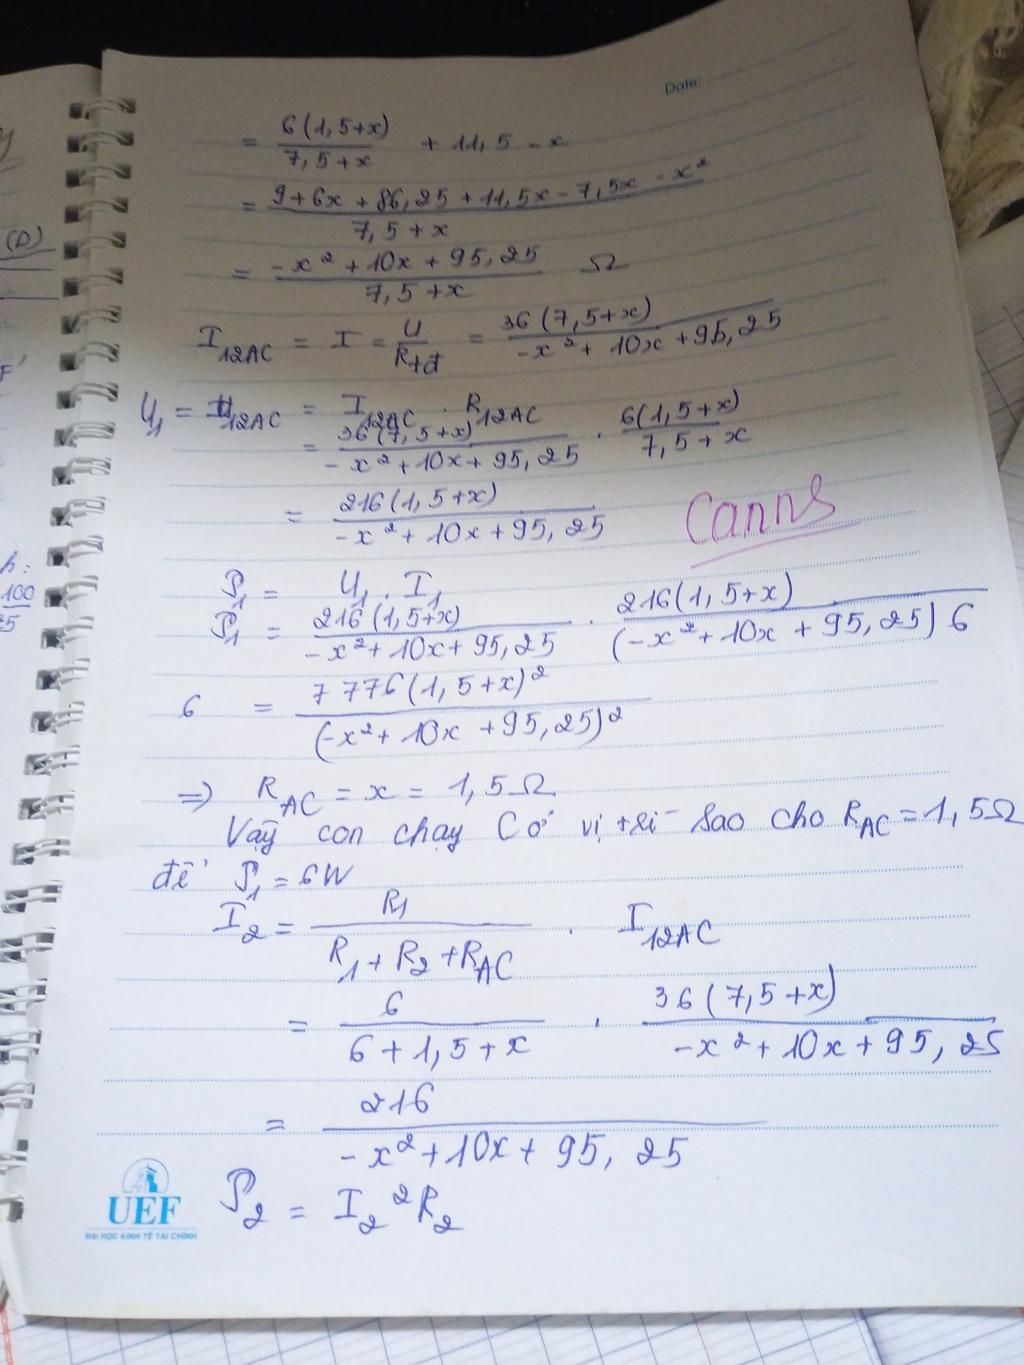 Date:
= 6(1,5+x) / 7,5+x + 11,5 - x
= 9+6x+86,25+11,5x-7,5x-x² / 7,5+x
= -x²+10x+95,25 / 7,5+x Ω
I12AC = I = U / Rtđ = 36(7,5+x) / -x²+10x+95,25
U1 = U12AC = I12AC . R12AC
= 36(7,5+x) / -x²+10x+95,25 . 6(1,5+x) / 7,5+x
= 216(1,5+x) / -x²+10x+95,25
CannS
P1 = U1 . I1
P1 = 216(1,5+x) / -x²+10x+95,25 . 216(1,5+x) / (-x²+10x+95,25)6
6 = 7776(1,5+x)² / (-x²+10x+95,25)²
=> RAC = x = 1,5Ω
Vậy con chạy C ở vị trí sao cho RAC = 1,5Ω
để P1 = 6W
I2 = R1 / R1+R2+RAC . I12AC
= 6 / 6+1,5+x . 36(7,5+x) / -x²+10x+95,25
= 216 / -x²+10x+95,25
P2 = I2²R2
UEF
ĐẠI HỌC KINH TẾ TÀI CHÍNH
(D)
h:
100